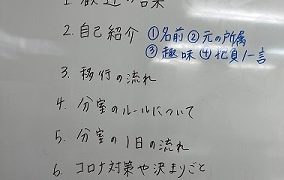 1. 歓迎の言葉
2. 自己紹介 ①名前 ②元の所属
③趣味 ④抱負/一言
3. 移行の流れ
4. 分室のルールについて
5. 分室の1日の流れ
6. コロナ対策や決まりごと